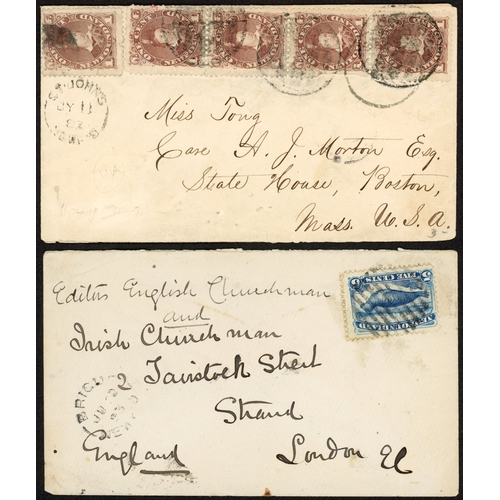 ST. JOHN'S
JY 11
Miss Tong
Care H. J. Morton Esq.
State House, Boston,
Mass. U.S.A.
FIVE CENTS
Editors English Churchman
and
Irish Churchman
2 Tavistock Street
Strand
England London EC
BRIGUS